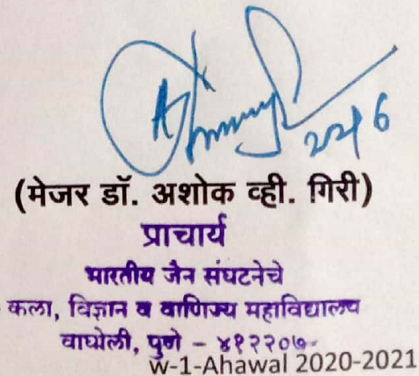 (मेजर डॉ. अशोक व्ही. गिरी)
प्राचार्य
भारतीय जैन संघटनेचे
कला, विज्ञान व वाणिज्य महाविद्यालय
वाघोली, पुणे - ४१२२०७.
w-1-Ahawal 2020-2021